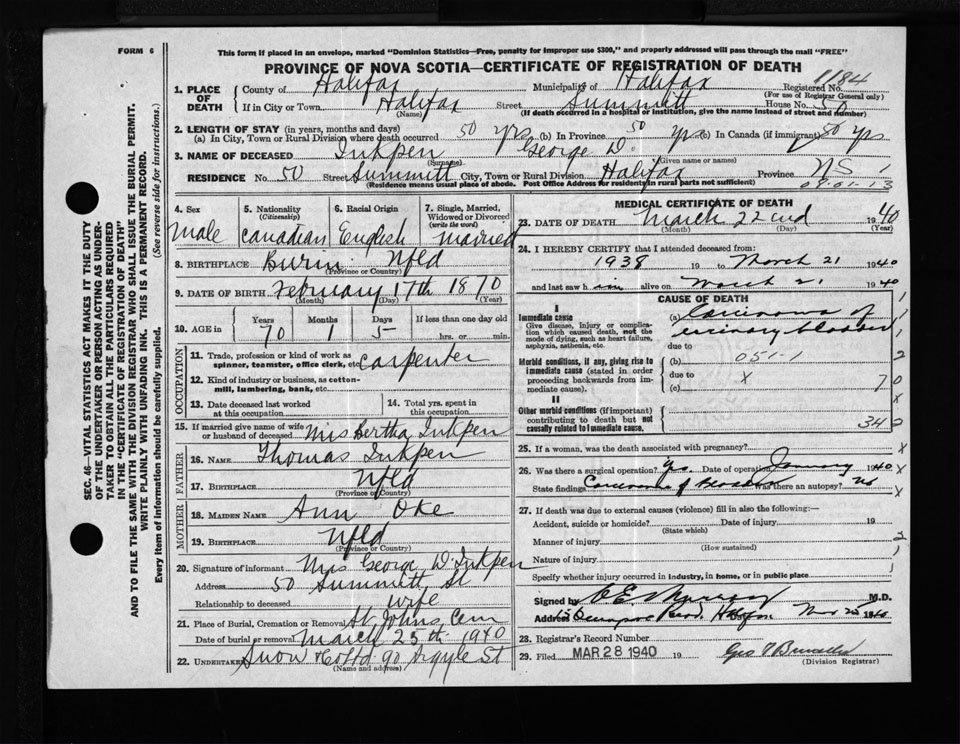 FORM 6
This form if placed in an envelope, marked "Dominion Statistics—Free, penalty for improper use $300," and properly addressed will pass through the mail "FREE"
PROVINCE OF NOVA SCOTIA—CERTIFICATE OF REGISTRATION OF DEATH
1184
1. PLACE OF DEATH County of Halifax Municipality of Halifax Registered No.
(For use of Registrar General only)
If in City or Town Halifax Street Summitt House No. 50
(Name) (If death occurred in a hospital or institution, give the name instead of street and number)
2. LENGTH OF STAY (in years, months and days)
(a) In City, Town or Rural Division where death occurred 50 yrs (b) In Province 50 yrs (c) In Canada (if immigrant) 50 yrs
3. NAME OF DECEASED Inkpen George D.
(Surname) (Given name or names)
RESIDENCE No. 50 Street Summitt City, Town or Rural Division Halifax Province NS
(Residence means usual place of abode. Post Office Address for residents in rural parts not sufficient) 09-01-13
4. Sex Male
5. Nationality (Citizenship) Canadian
6. Racial Origin English
7. Single, Married, Widowed or Divorced (write the word) Married
8. BIRTHPLACE Burin Nfld
(Province or Country)
9. DATE OF BIRTH February 17th 1870
(Month) (Day) (Year)
10. AGE in Years 70 Months 1 Days 5 If less than one day old hrs. or min.
OCCUPATION
11. Trade, profession or kind of work as spinner, teamster, office clerk, etc. Carpenter
12. Kind of industry or business, as cotton-mill, lumbering, bank, etc.
13. Date deceased last worked at this occupation
14. Total yrs. spent in this occupation
15. If married give name of wife or husband of deceased Mrs Bertha Inkpen
FATHER
16. Name Thomas Inkpen
17. Birthplace Nfld
(Province or Country)
MOTHER
18. MAIDEN NAME Ann Oke
19. BIRTHPLACE Nfld
(Province or Country)
20. Signature of informant Mrs George D. Inkpen
Address 50 Summitt St
Relationship to deceased wife
21. Place of Burial, Cremation or Removal St Johns Cem
Date of burial or removal March 25th 1940
22. Undertaker Snow & Co Ltd 90 Argyle St
(Name and address)
MEDICAL CERTIFICATE OF DEATH
23. DATE OF DEATH March 22nd 1940
(Month) (Day) (Year)
24. I HEREBY CERTIFY that I attended deceased from:
1938 19 to March 21 1940
and last saw him alive on March 21 1940
CAUSE OF DEATH
I
Immediate cause
Give disease, injury or complication which caused death, not the mode of dying, such as heart failure, asphyxia, asthenia, etc.
(a) Carcinoma of urinary bladder
due to
Morbid conditions, if any, giving rise to immediate cause (stated in order proceeding backwards from immediate cause).
(b) 051-1
due to X
(c)
II
Other morbid conditions (if important) contributing to death but not causally related to immediate cause.
340
25. If a woman, was the death associated with pregnancy?
26. Was there a surgical operation? Yes. Date of operation January 1940
State findings Carcinoma of Bladder Was there an autopsy? No
27. If death was due to external causes (violence) fill in also the following:—
Accident, suicide or homicide? Date of injury 19
(State which)
Manner of injury
(How sustained)
Nature of injury
Specify whether injury occurred in industry, in home, or in public place
Signed by M.D.
Address Halifax 1940
28. Registrar's Record Number
29. Filed MAR 28 1940 19
(Division Registrar)
SEC. 46—VITAL STATISTICS ACT MAKES IT THE DUTY OF THE UNDERTAKER OR PERSON ACTING AS UNDERTAKER TO OBTAIN ALL THE PARTICULARS REQUIRED IN THE "CERTIFICATE OF REGISTRATION OF DEATH" AND TO FILE THE SAME WITH THE DIVISION REGISTRAR WHO SHALL ISSUE THE BURIAL PERMIT.
WRITE PLAINLY WITH UNFADING INK. THIS IS A PERMANENT RECORD.
Every item of information should be carefully supplied. (See reverse side for instructions.)